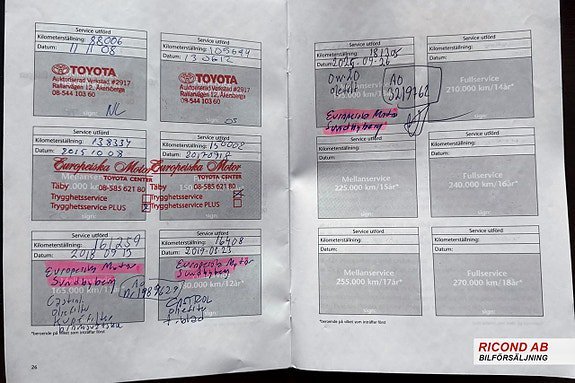 Service utförd
Kilometerställning: 88006
Datum: 11 11 08
TOYOTA
Auktoriserad Verkstad #2917
Rallarvägen 12, Åkersberga
08-544 103 60
sign:
Service utförd
Kilometerställning: 105644
Datum: 13 06 12
TOYOTA
Auktoriserad Verkstad #2917
Rallarvägen 12, Åkersberga
08-544 103 60
Service utförd
Kilometerställning: 138334
Datum: 2015 10 08
Europeiska Motor
TOYOTA CENTER
Täby 08-585 621 80
Trygghetsservice
Trygghetsservice PLUS
sign:
Service utförd
Kilometerställning: 150008
Datum:
Europeiska Motor
TOYOTA CENTER
08-585 621 80
Trygghetsservice
Trygghetsservice PLUS
sign:
Service utförd
Kilometerställning: 161259
Datum: 2018 09 13
Europeiska Motor
Sundbyberg
165.000 km/11år*
Castrol
oljefilter
kupefilter
Service utförd
Kilometerställning: 16408
Datum: 2019-01-23
Europeiska Motor
Sundbyberg
AO
CASTROL
oljefilter
*beroende på vilket som inträffar först
26
Service utförd
Kilometerställning:
Datum:
0w-20
oljefilt
AO
3219762
Europeiska Motor
Sundbyberg
Fullservice
210.000 km/14år*
sign:
Service utförd
Kilometerställning:
Datum:
Mellanservice
225.000 km/15år*
sign:
Service utförd
Kilometerställning:
Datum:
Fullservice
240.000 km/16år*
sign:
Service utförd
Kilometerställning:
Datum:
Mellanservice
255.000 km/17år*
sign:
Service utförd
Kilometerställning:
Datum:
Fullservice
270.000 km/18år*
*beroende på vilket som inträffar först
RICOND AB
BILFÖRSÄLJNING